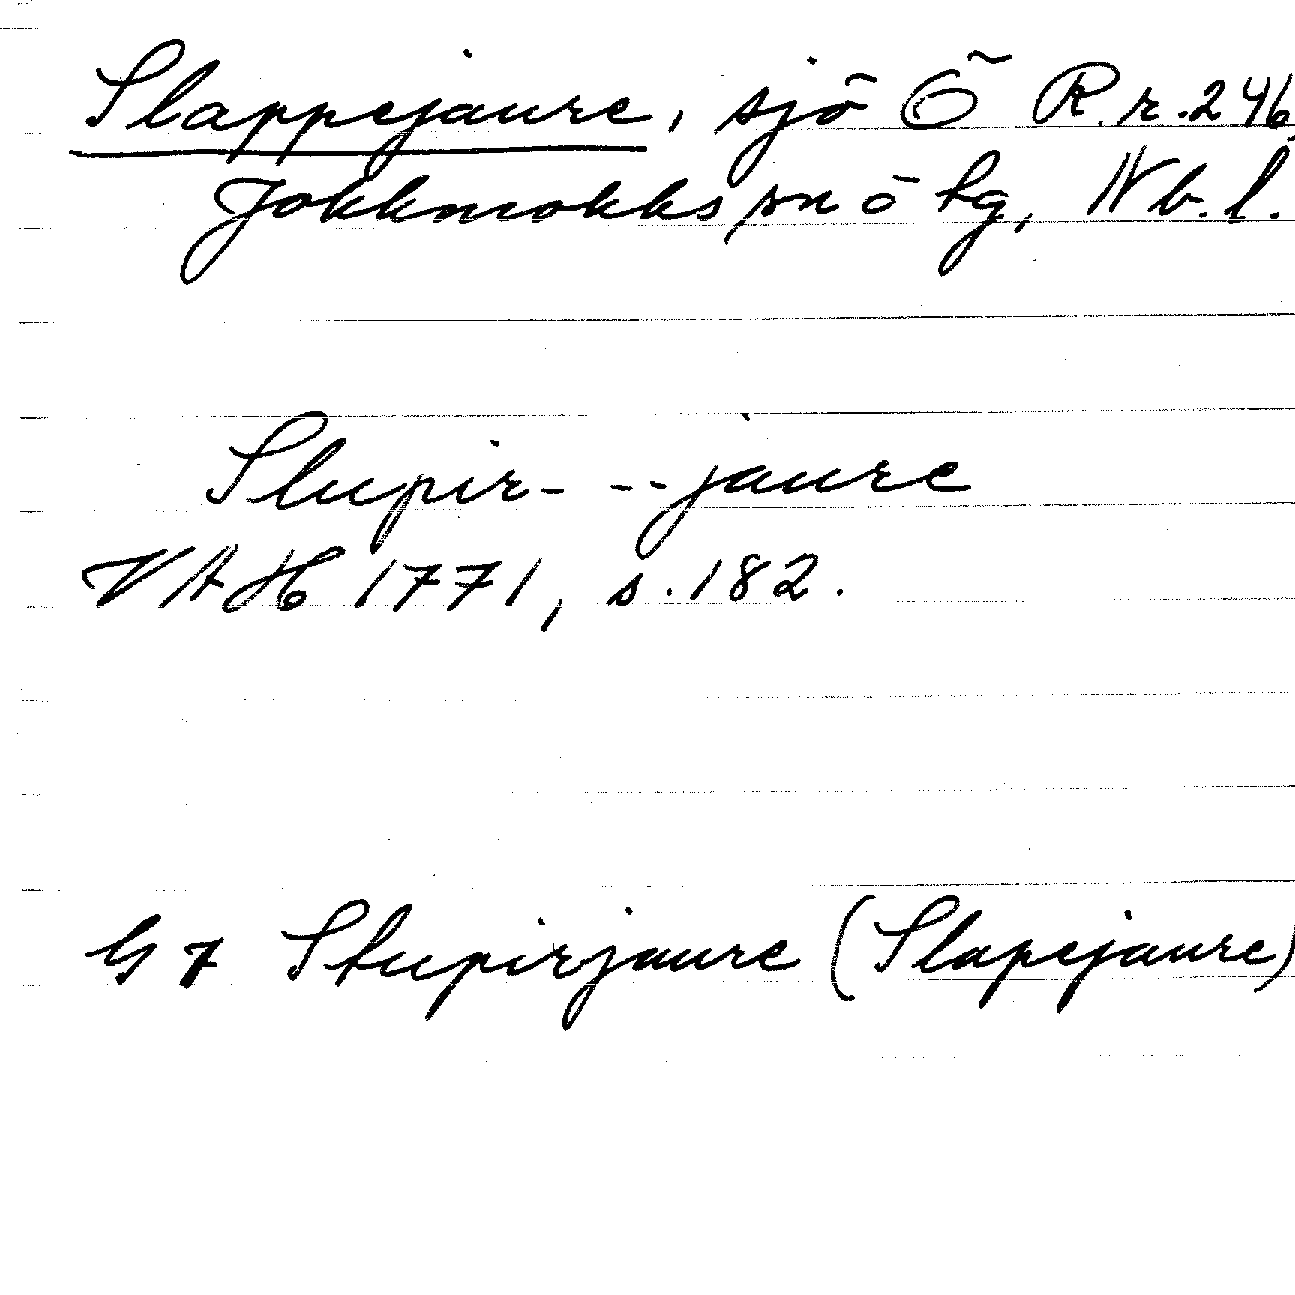 Slappejaure, sjö Ö R.r.246,
Jokkmokks sn ö tg, Nb.l.
Slupir- --jaure
VAH 1771, s.182.
G7 Stupirjaure (Slapejaure)